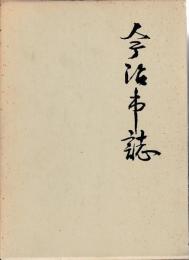 今治市誌